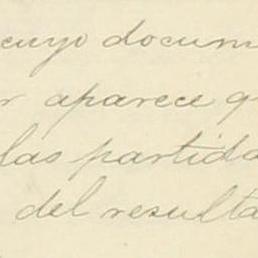 cuyo docum
r aparece q
las partida
del resulta